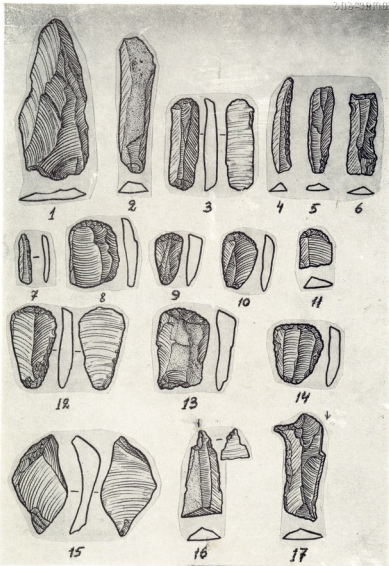 1 2 3 4 5 6
7 8 9 10 11
12 13 14
15 16 17